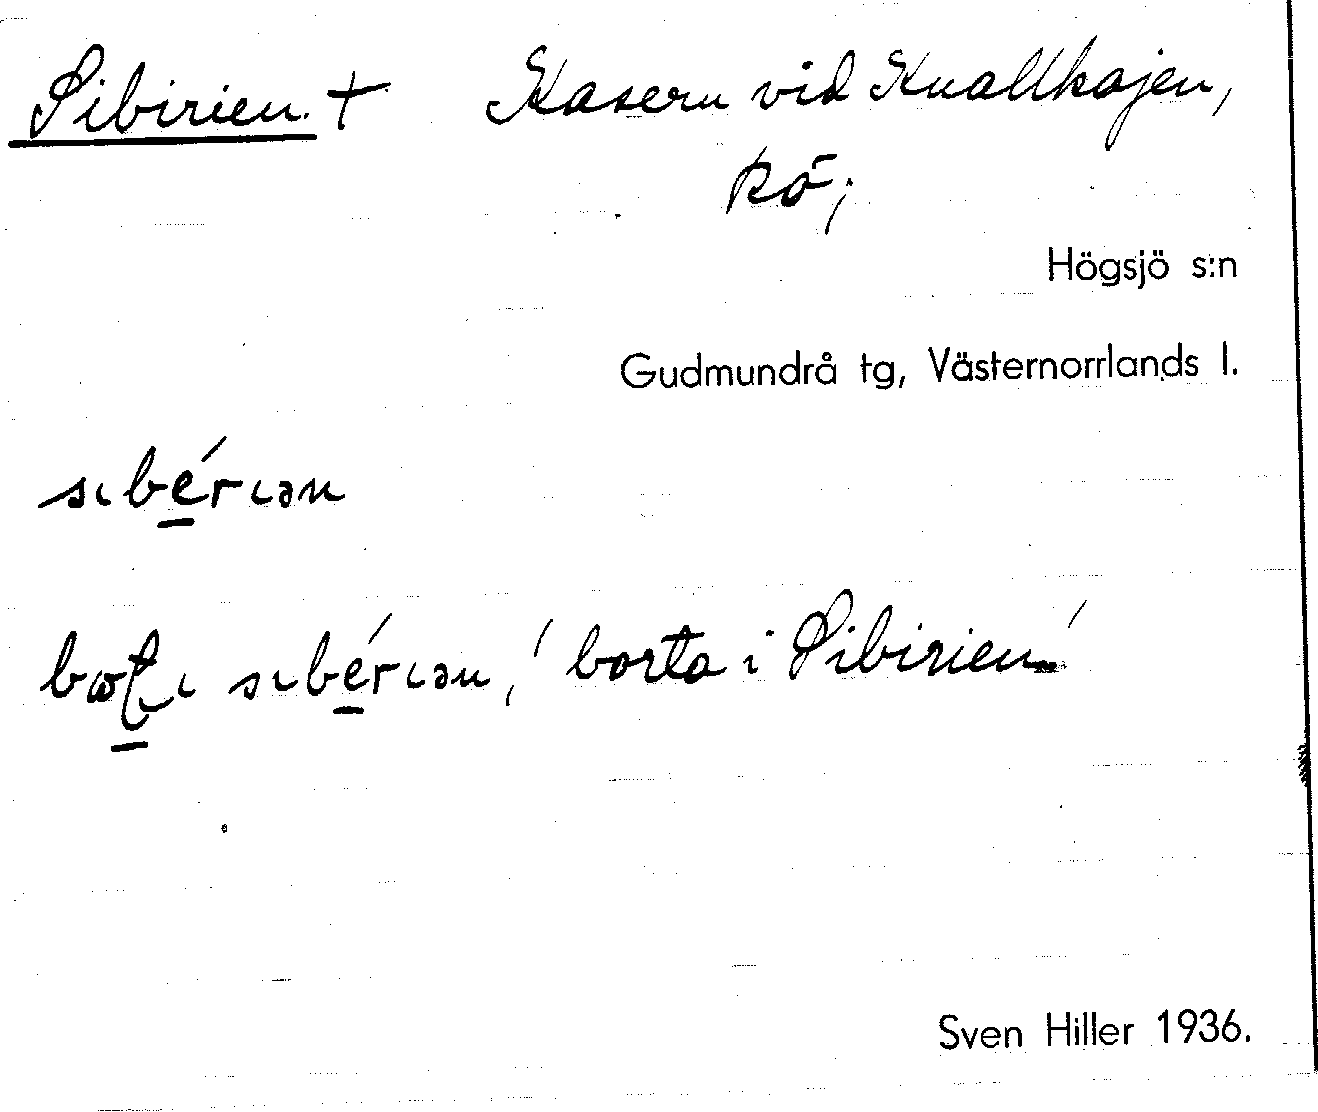 Sibirien. + Kasern vid Knallkajen,
kö;
Högsjö s:n
Gudmundrå tg, Västernorrlands l.
sıbérıən
ı sıbérıən, 'borta i Sibirien'
Sven Hiller 1936.